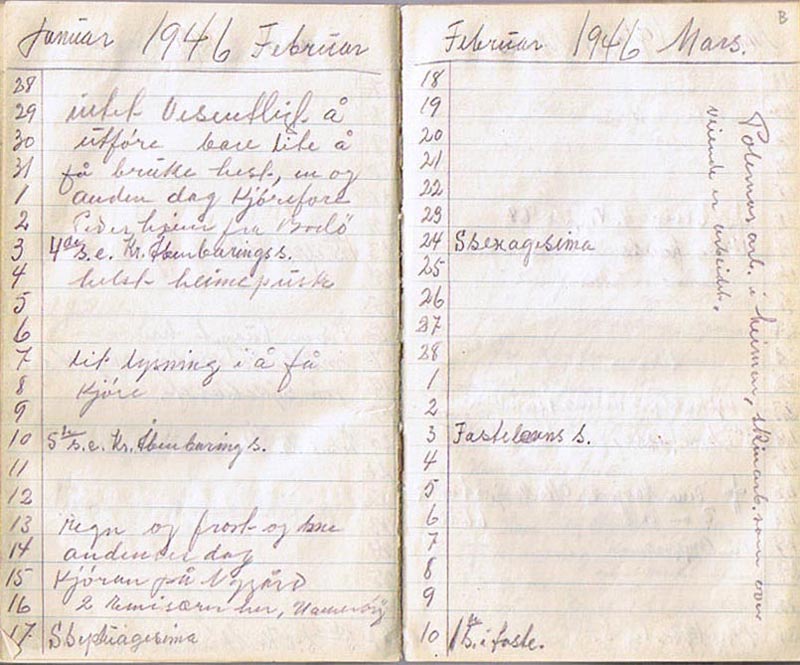 Januar 1946 Februar
28
29 intet Vesentligt å
30 utföre bare lite å
31 få bruke hest, en og
1 anden dag Kjöreföre
2 Peder hjem fra Bodö
3 4de s.e. Kr. Åbenbarings s.
4 helst heimepusk
5
6
7 lit lysning i å få
8 Kjöre
9
10 5te s.e. Kr. Åbenbarings s.
11
12
13 regn og frost og sne
14 andenves dag
15 Kjöran på Nygård
16 2 Emisærn her,
17 S Septuagesima
Februar 1946 Mars.
B
18
19
20
21
22
23
24 S sexagesima
25
26
27
28
1
2
3 Fastelavns s.
4
5
6
7
8
9
10 1ste s. i faste.
arb. i heimen, som over
er